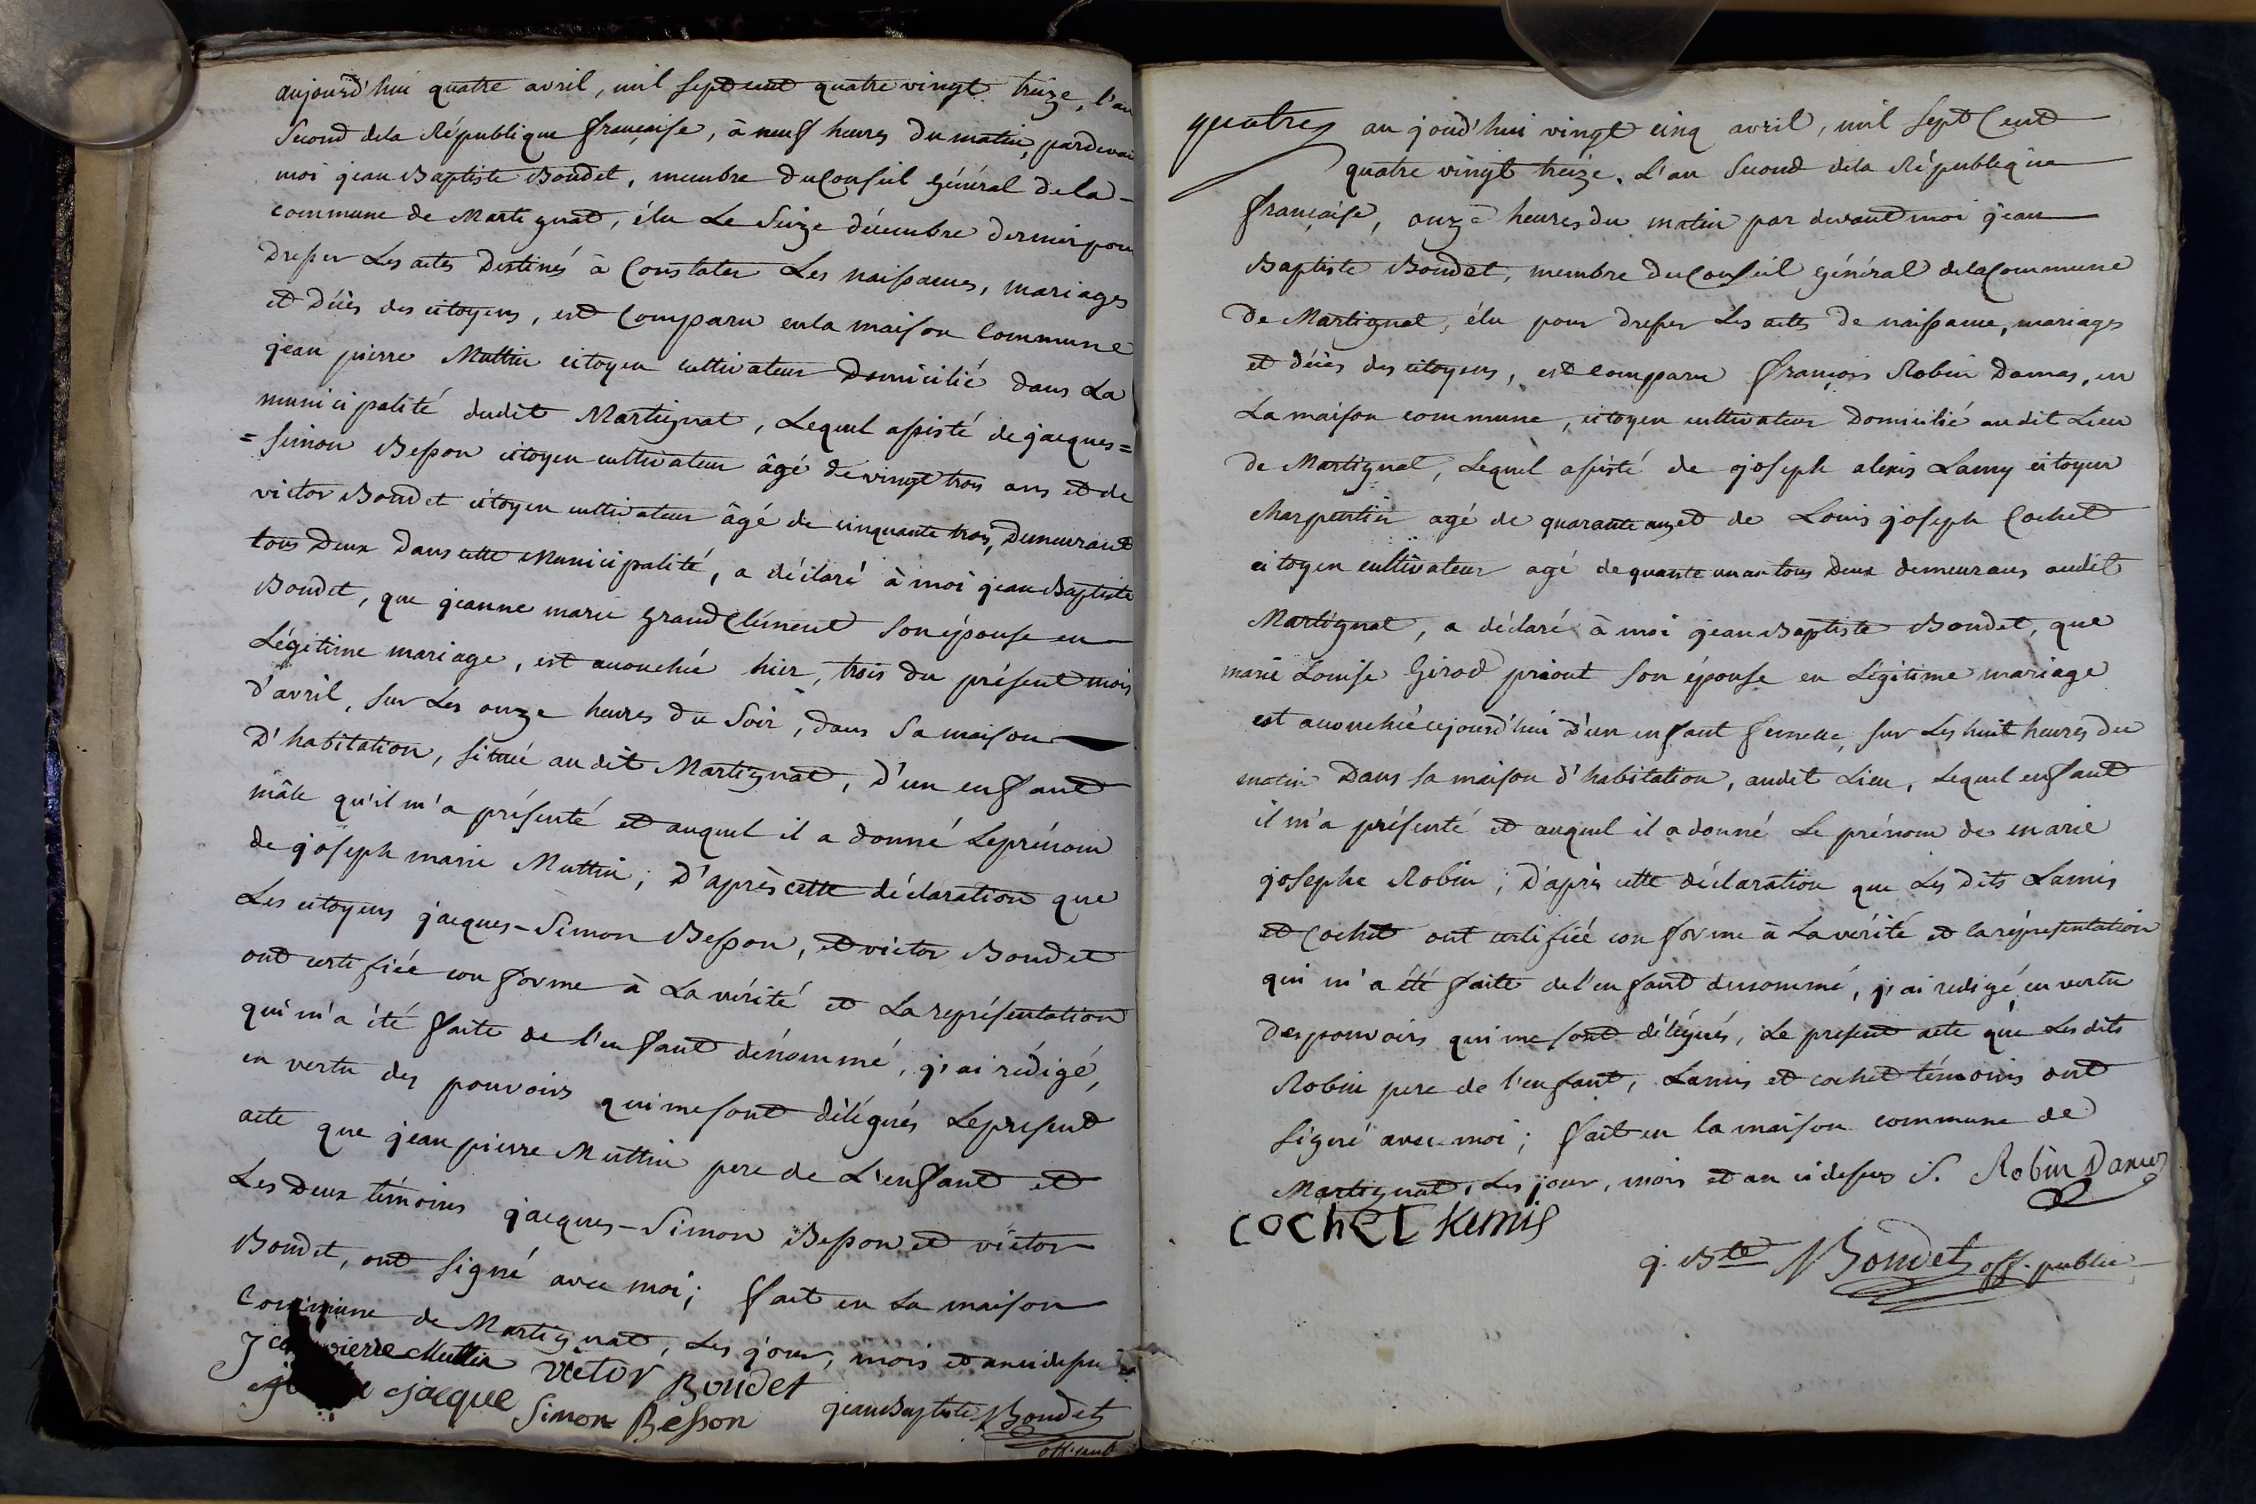 aujourd'hui quatre avril, mil sept cent quatre vingt treize, l'an
second de la République française, à neuf heures du matin, pardevant
moi jean Baptiste Boudet, membre du Conseil général de la
commune de Martignat, élu Le Seize décembre dernier pour
dresser Les actes destinés à Constater Les naissances, mariages
et décès des citoyens, est Comparu en la maison Commune
jean pierre Muttin citoyen cultivateur Domicilié dans La
municipalité dudit Martignat, Lequel assisté de jacques=
=simon Besson citoyen cultivateur âgé de vingt trois ans et de
victor Boudet citoyen cultivateur âgé de cinquante trois, Demeurant
tous Deux Dans cette Municipalité, a déclaré à moi jean Baptiste
Boudet, que jeanne marie grand Clément son épouse en
Légitime mariage, est accouchée hier, trois du présent mois
d'avril, sur Les onze heures du Soir, dans sa maison
D'habitation, située audit Martignat, D'un enfant
mâle qu'il m'a présenté et auquel il a donné Le prénom
de joseph marie Muttin; D'après cette déclaration que
Les citoyens jacques-Simon Besson, et victor Boudet
ont certifiée conforme à La vérité et La représentation
qui m'a été faite de l'enfant dénommé, j'ai rédigé,
en vertu des pouvoirs qui me sont délégués Le présent
acte que jean pierre Muttin pere de L'enfant et
Les Deux témoins jacques-Simon Besson et victor
Boudet, ont signé avec moi; fait en La maison
Commune de Martignat, Les jour, mois et an ci dessus
pierre Muttin victor Boudet
jacque Simon Besson jean Baptiste Boudet
off. publ
quatre aujoud'hui vingt cinq avril, mil sept Cent
quatre vingt treize. L'an Second de la République
française, onze heures du matin par devant moi jean
Baptiste Boudet, membre du Conseil général de la Commune
De Martignat, élu pour dresser Les actes de naissance, mariages
et décès des citoyens, est comparu françois Robin Damas, en
La maison commune, citoyen cultivateur Domicilié audit Lieu
de Martignat, Lequel assisté de joseph alexis Lamy citoyen
charpentier agé de quarante ans et de Louis joseph Cochet
citoyen cultivateur agé de quarante un an tous Deux demeurans audit
Martignat, a déclaré à moi jean Baptiste Boudet, que
marie Louise Girod priout son épouse en Légitime mariage
est accouchée cejourd'hui D'un enfant femelle, sur Les huit heures du
matin Dans sa maison d'habitation, audit Lieu, Lequel enfant
il m'a présenté et auquel il a donné Le prénom de marie
josephe Robin; D'après cette déclaration que Les dits Lamis
et Cochet ont certifiée conforme à La vérité et la représentation
qui m'a été faite de l'enfant denommé, j'ai redigé, en vertu
des pouvoirs qui me sont délégués, Le present acte que Les dits
Robin pere de l'enfant, Lamis et cochet témoins ont
signé avec moi; fait en la maison commune de
Martignat, Les jour, mois et an ci dessus f. Robin Damas
COCHET Lemis
j. Bte Boudet off. public